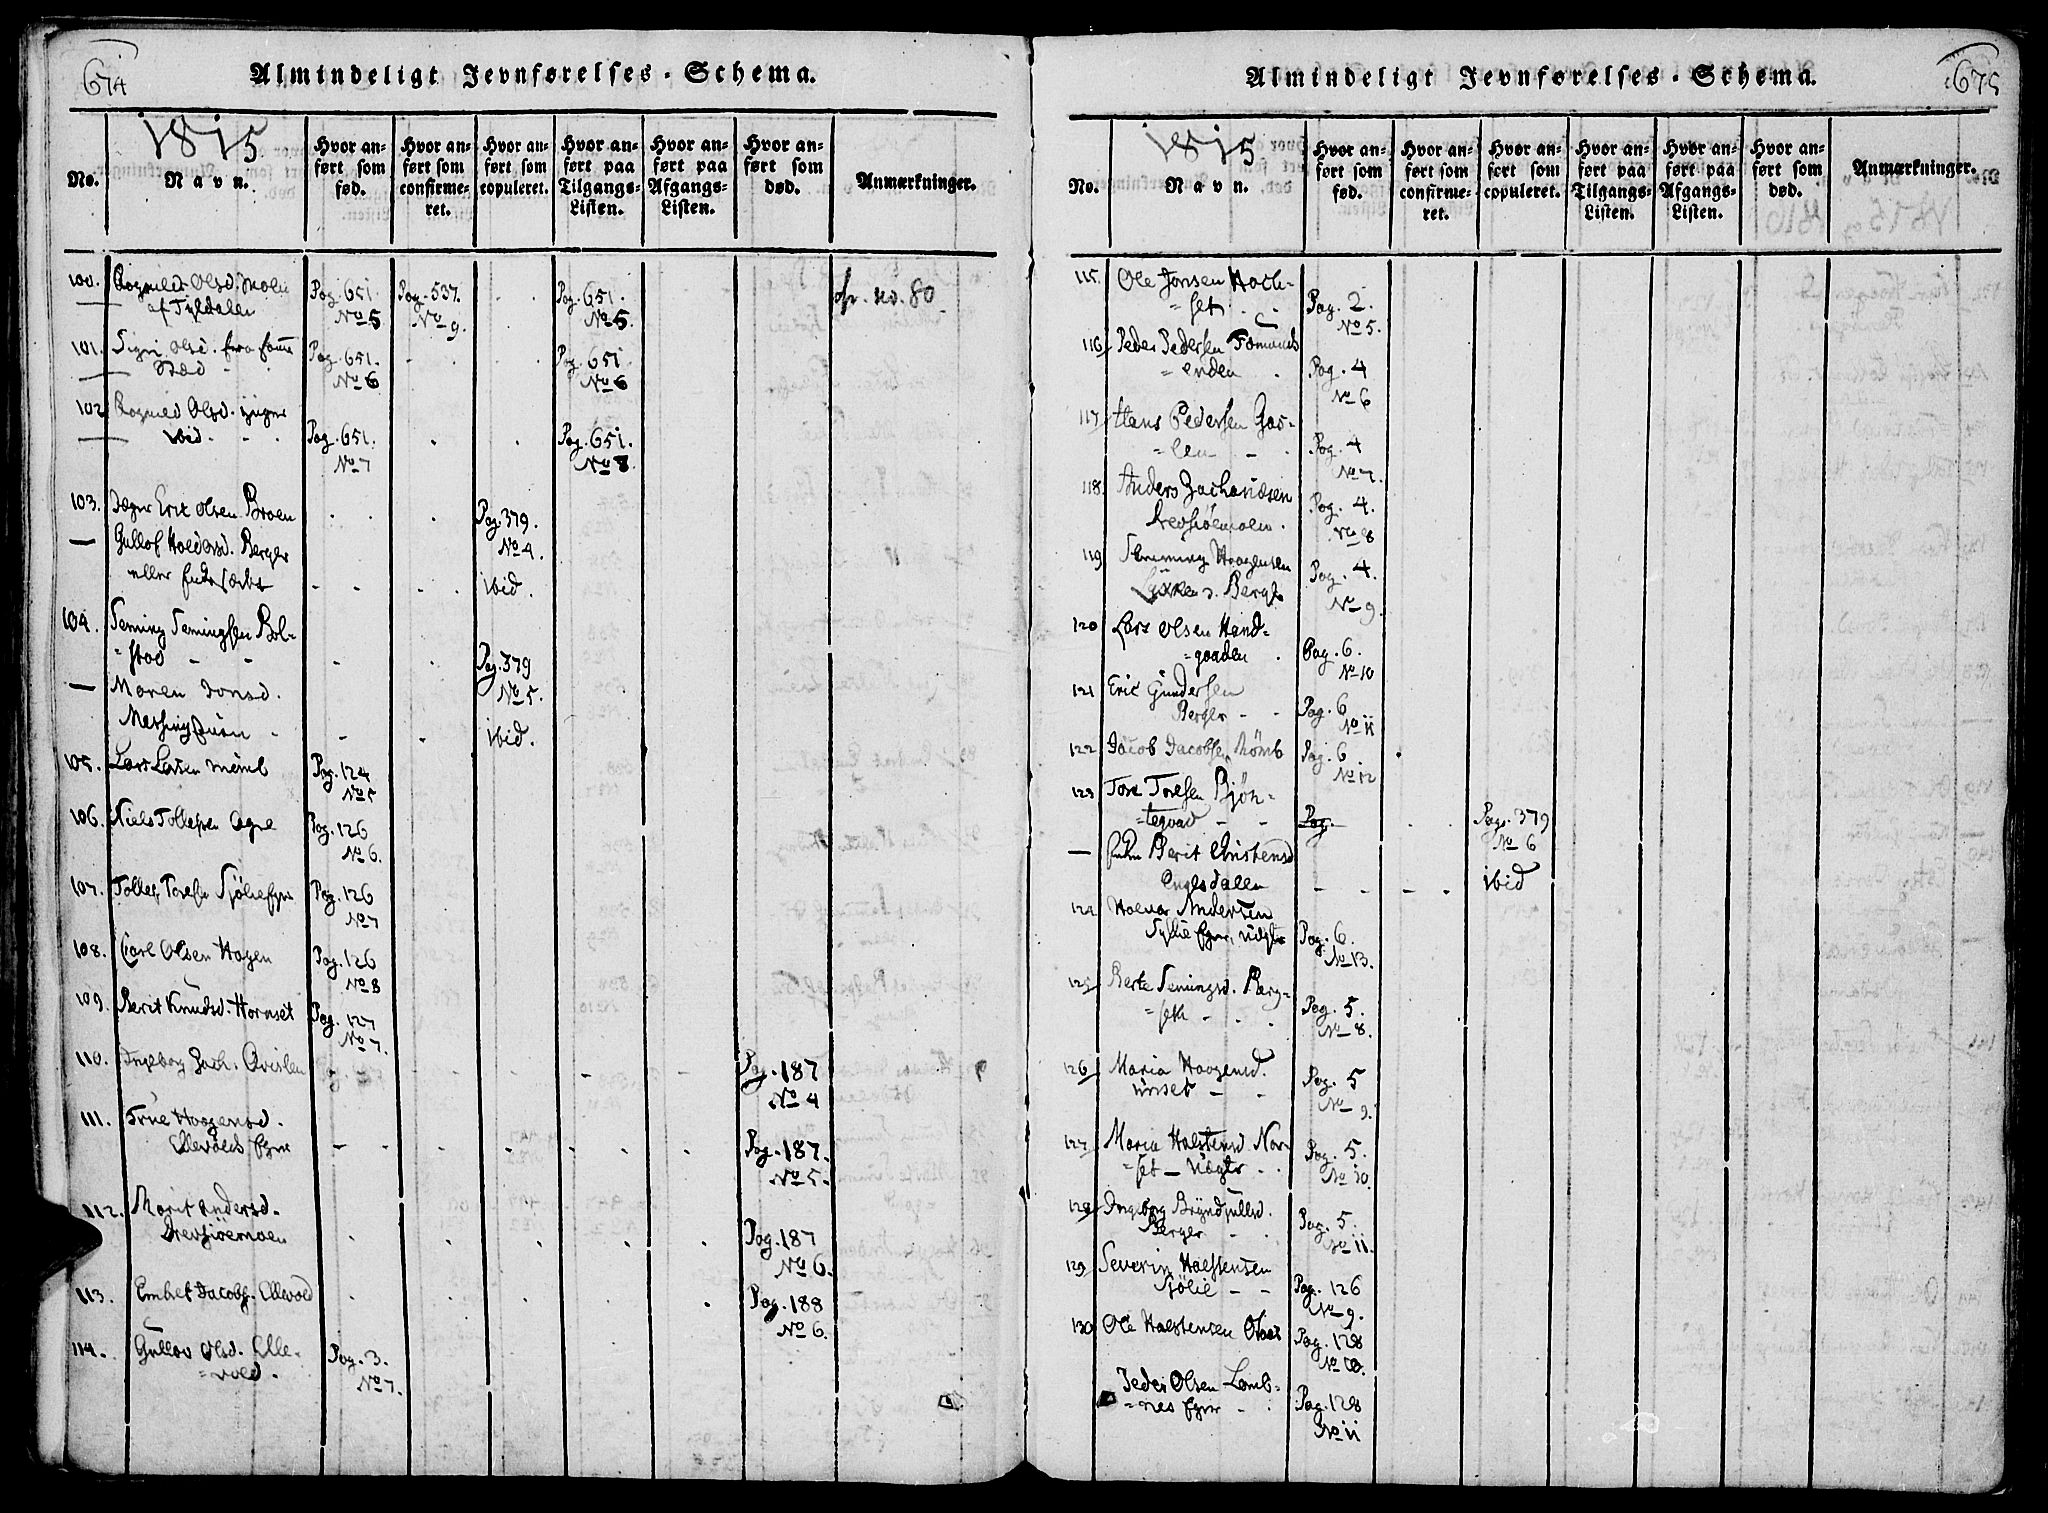 674
Almindeligt Jevnførelses-Schema.
1815
No.
Navn.
Hvor anført som fød.
Hvor anført som confirmeret.
Hvor anført som copuleret.
Hvor anført paa Tilgangs-Listen.
Hvor anført paa Afgangs-Listen.
Hvor anført som død.
Anmærkninger.
100. Ragnild Olsd. Moen Pag. 651. Pag. 537. Pag. 651. cfr. no. 80
af Tyldalen No 5 No 9. No 5.
101. Sigri Olsd. fra samme Pag. 651. Pag. 651
Stæd No 6 No 6
102 Ragnild Olsd. ynger
ibid. Pag. 651. Pag. 651.
No 7 No 8
103. Jæger Eric Olsen Broen Pag. 379.
Gullof Halvorsd. Berger No 4.
eller ibid.
104. Seming Semingsen Bol-
=stad Pag. 379
Maren Jonsd. No 5.
Messing ibid.
105. Lars Larsen Pag. 124
No 5
106. Niels Tollefsen Agre Pag. 126
No 6.
107. Tollef Toresen Sjølie Pag. 126
No 7
108. Carl Olsen Hagen Pag. 126
No 8
109. Berit Knudsd. Hornset Pag. 127
No 7.
110. Ingeborg Zach. Qvislen Pag. 187
No 4
111. True Haagensd. Pag. 187.
Ellevold No 5.
112. Marit Andersd.
Drevsiøemoen Pag. 187
No 6.
113. Embret Jacobs. Ellevold Pag. 188
No 6.
114. Gullov Olsd. Elle-
=vold. Pag. 3.
No 7.
675
Almindeligt Jevnførelses-Schema.
1815
No.
Navn.
Hvor anført som fød.
Hvor anført som confirmeret.
Hvor anført som copuleret.
Hvor anført paa Tilgangs-Listen.
Hvor anført paa Afgangs-Listen.
Hvor anført som død.
Anmærkninger.
115. Ole Jonsen Hach-
=set Pag. 2.
No 5.
116 Peder Pedersen Fæmunds
=enden Pag. 4
No 6
117 Hans Pedersen Gar-
=len Pag. 4
No 7.
118. Anders Zachariæsen Pag. 4.
Drevsiøemoen. No 8
119 Seming Haagensen Pag. 4.
Berger No 9.
120 Lars Olsen Hand-
=gaarden Pag. 6.
No 10
121 Eric Gundersen
Berger Pag. 6
No 11
122 Jacob Jacobsen Pag. 6
No 12
123 Tore Toresen Bjøn-
=tegaard Pag. Pag. 379
No 6
Berit Christensd
Engesdalen ibid
124 Halvor Andersen
Pag. 6.
No 13.
125 Berte Semingsd. Berg-
=set Pag. 5.
No 8.
126 Maria Haagensd.
Unset Pag. 5
No 9.
127 Maria Halstensd Nor-
=set Pag. 5.
No 10.
128 Ingeborg Bryndjulfsd.
Berger Pag. 5.
No 11.
129 Severin Halstensen
Sjølie Pag. 126
No 9.
130 Ole Halstensen Pag. 128
No 10.
Peder Olsen Lomb-
=næs Pag. 128
No 11